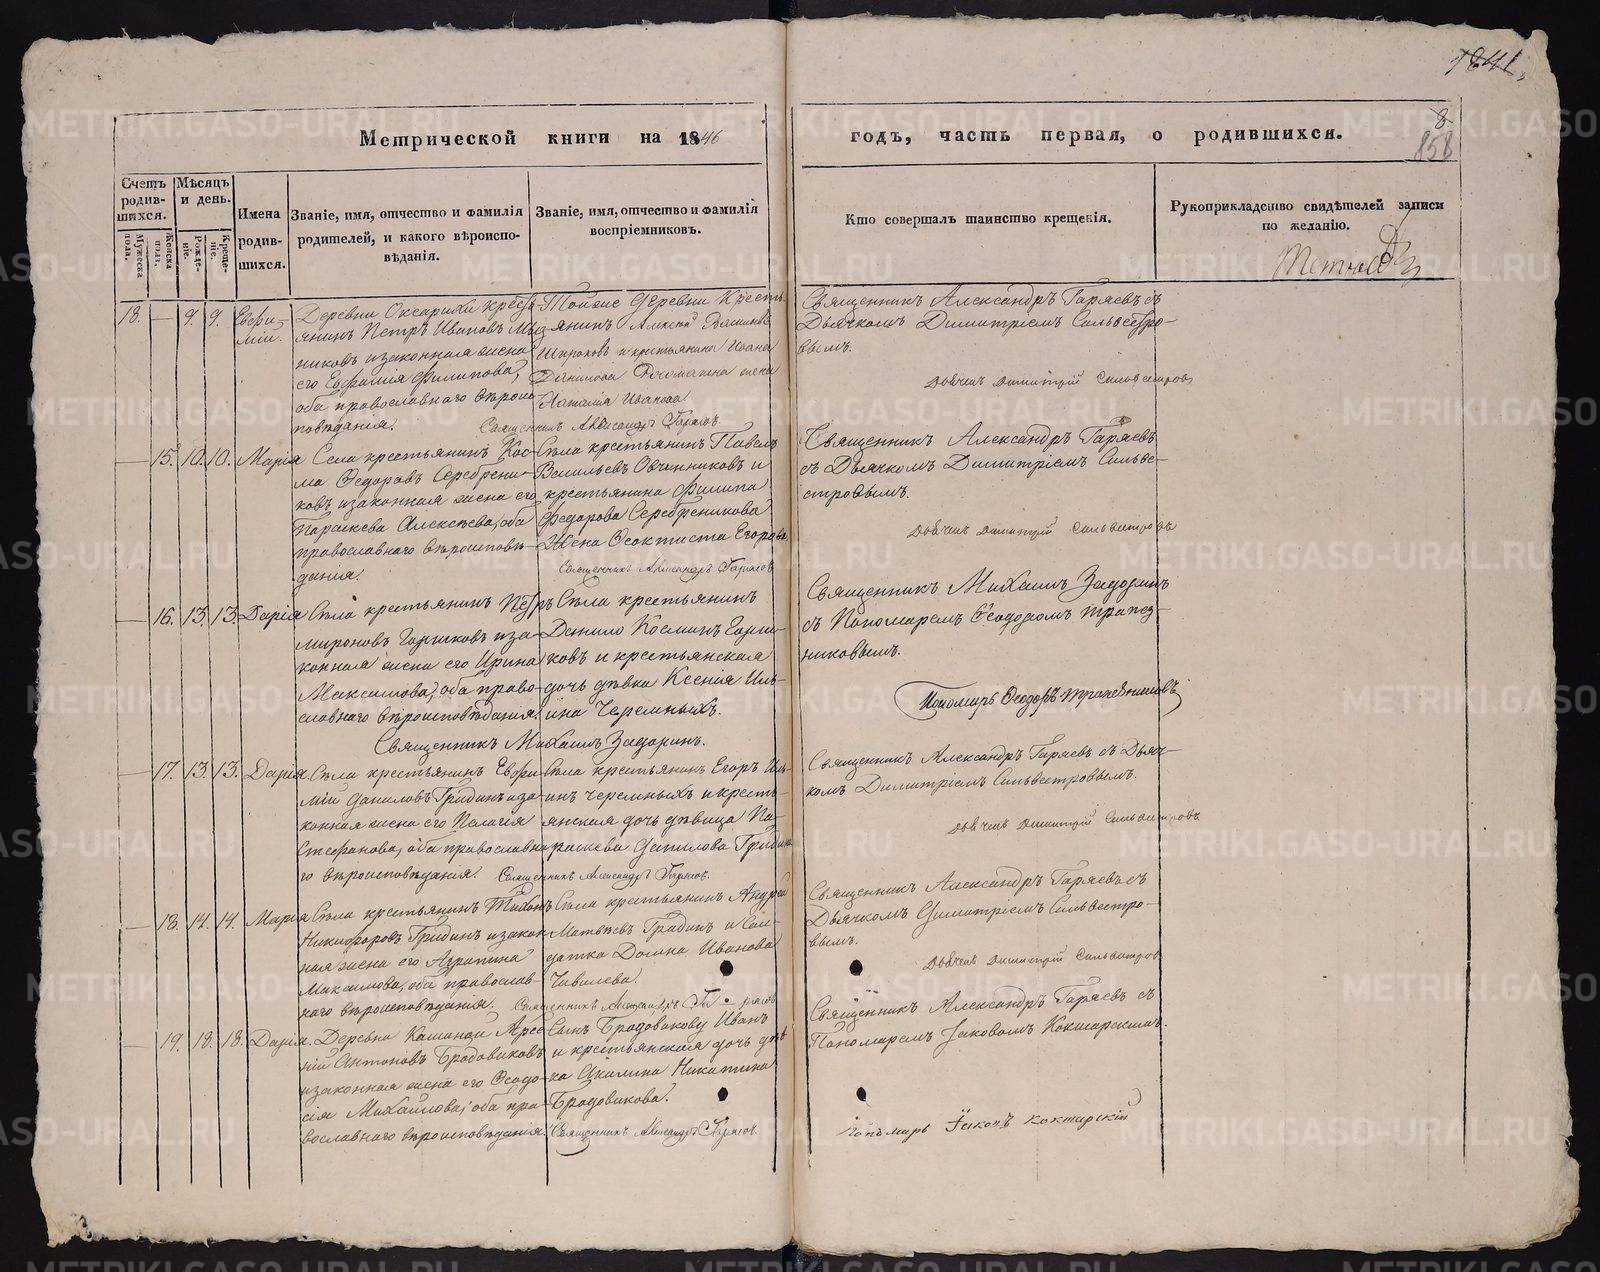 1841
8
858
Метрической книги на 1846
годъ, часть первая, о родившихся.
Счетъ родив-шихся.
Мѣсяцъ и день.
Имена родив-шихся.
Званіе, имя, отчество и фамилія
родителей, и какого вѣроиспо-
вѣданія.
Званіе, имя, отчество и фамилія
воспріемниковъ.
Кто совершалъ таинство крещенія.
Рукоприкладство свидѣтелей записи
по желанію.
Мужеска пола.
Женска пола.
Рожде-ніе.
Креще-ніе.
18. — 9. 9. Евфи-
мій.
Деревни крестьь-
янинъ Петръ Ивановъ
никовъ и законная жена
его Евфимія Филипова,
оба православнаго вѣроис-
повѣданія.
Тойже деревни кресть-
янинъ Алексѣй Васильевъ
Широковъ и крестьянина Ивана
Данилова жена
Наталія Иванова
Священникъ Александръ Гаряевъ
Священникъ Александръ Гаряевъ съ
Дьячкомъ Димитріемъ Сильвестро-
вымъ.
Дьячекъ Димитрій Сильвестровъ
— 15. 10. 10. Марія
Села крестьянинъ Кос-
ма Ѳедоровъ Серебрени-
ковъ и законная жена его
Параскева Алексѣева, оба
православнаго вѣроисповѣ-
данія.
Села крестьянинъ Павелъ
Васильевъ Овчинниковъ и
крестьянина Филипа
Федорова Серебреникова
Жена Ѳеоктиста Егорова
Священникъ Александръ Гаряевъ
Священникъ Александръ Гаряевъ
съ Дьячкомъ Димитріемъ Сильве-
стровымъ.
Дьячекъ Димитрій Сильвестровъ
— 16. 13. 13. Дарія
Села крестьянинъ Петръ
Мироновъ Горшковъ и за-
конная жена его Ирина
Максимова, оба право-
славнаго вѣроисповѣданія.
Села крестьянинъ
Данило Косминъ Горш-
ковъ и крестьянская
дочь дѣвка Ксенія Иль-
ина Черемныхъ.
Священникъ Михаилъ Задоринъ.
Священникъ Михаилъ Задоринъ
съ Пономаремъ Ѳеодоромъ Трапез-
никовымъ.
Пономарь Ѳеодоръ Трапезниковъ
— 17. 13. 13. Дарія.
Села крестьянинъ Евфи-
мій Даниловъ Грибинъ и за-
конная жена его Пелагія
Стефанова, оба православна-
го вѣроисповѣданія.
Села крестьянинъ Егоръ Иль-
инъ Черемныхъ и кресть-
янская дочь дѣвица Па-
раскева Данилова Грибина
Священникъ Александръ Гаряевъ.
Священникъ Александръ Гаряевъ съ Дьяч-
комъ Димитріемъ Сильвестровымъ.
Дьячекъ Димитрій Сильвестровъ
— 18. 14. 14. Марія
Села крестьянинъ Тихонъ
Никифоровъ Грибинъ и закон-
ная жена его Агрипина
Максимова, оба православ-
наго вѣроисповѣданія.
Села крестьянинъ Андрей
Матвѣевъ Грибинъ и Сол-
датка Домна Иванова
Чивилева.
Священникъ Александръ Гаряевъ
Священникъ Александръ Гаряевъ съ
Дьячкомъ Димитріемъ Сильвестро-
вымъ.
Дьячекъ Димитрій Сильвестровъ
— 19. 18. 18. Дарія.
Деревни Арсе-
ній Антоновъ Бродовиковъ
и законная жена его Ѳеодо-
сія Михайлова, оба пра-
вославнаго вѣроисповѣданія.
Сынъ Бродовикову Иванъ
и крестьянская дочь дѣв-
ка Акилина Никитина
Бродовикова.
Священникъ Александръ Гаряевъ.
Священникъ Александръ Гаряевъ съ
Пономаремъ Іаковомъ Кокшарскимъ.
Пономарь Іаковъ Кокшарскій
METRIKI.GASO-URAL.RU